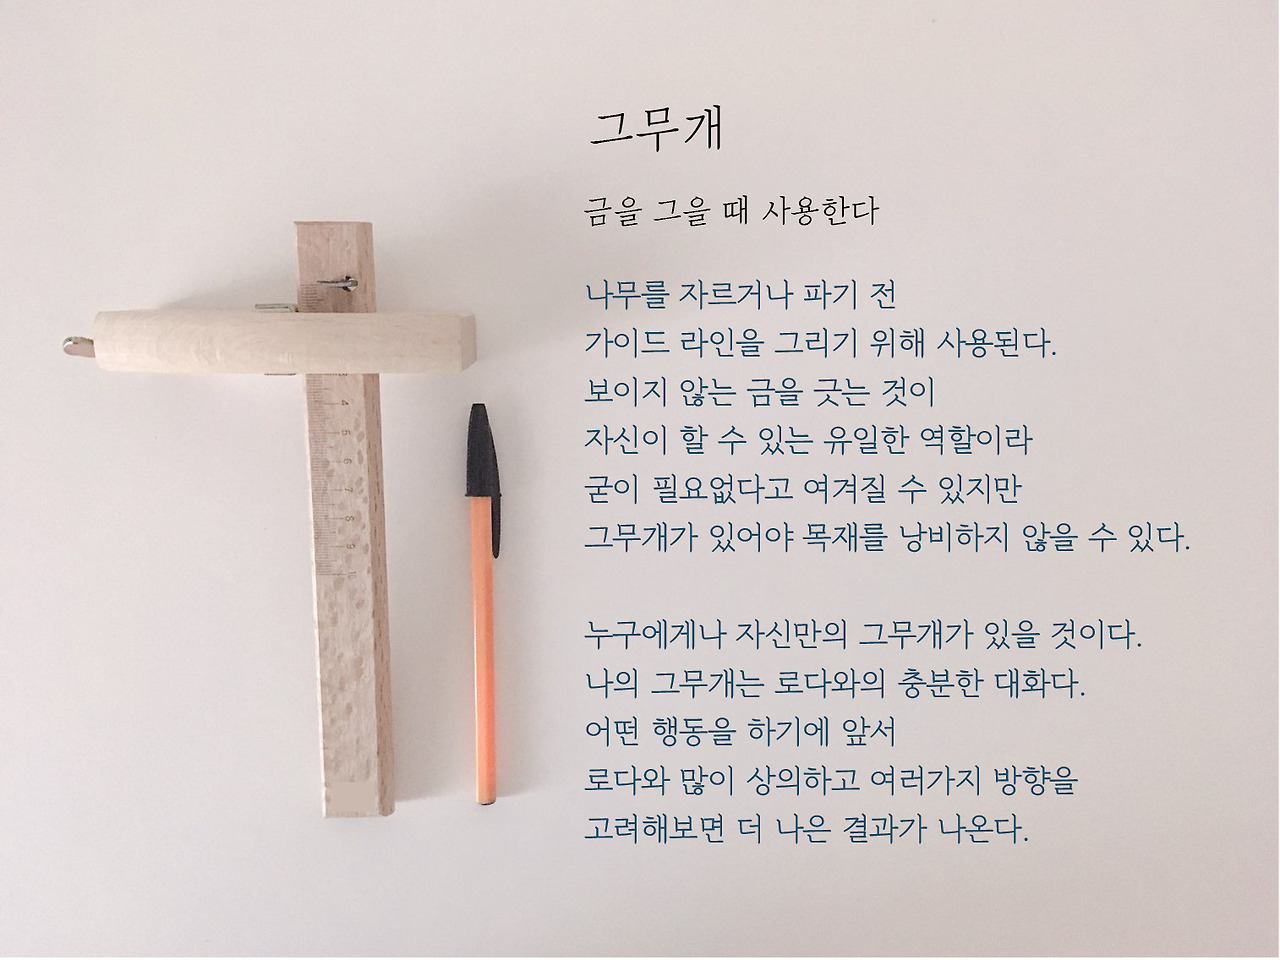 그무개
금을 그을 때 사용한다
나무를 자르거나 파기 전
가이드 라인을 그리기 위해 사용된다.
보이지 않는 금을 긋는 것이
자신이 할 수 있는 유일한 역할이라
굳이 필요없다고 여겨질 수 있지만
그무개가 있어야 목재를 낭비하지 않을 수 있다.
누구에게나 자신만의 그무개가 있을 것이다.
나의 그무개는 로다와의 충분한 대화다.
어떤 행동을 하기에 앞서
로다와 많이 상의하고 여러가지 방향을
고려해보면 더 나은 결과가 나온다.
4
5
6
7
8
9